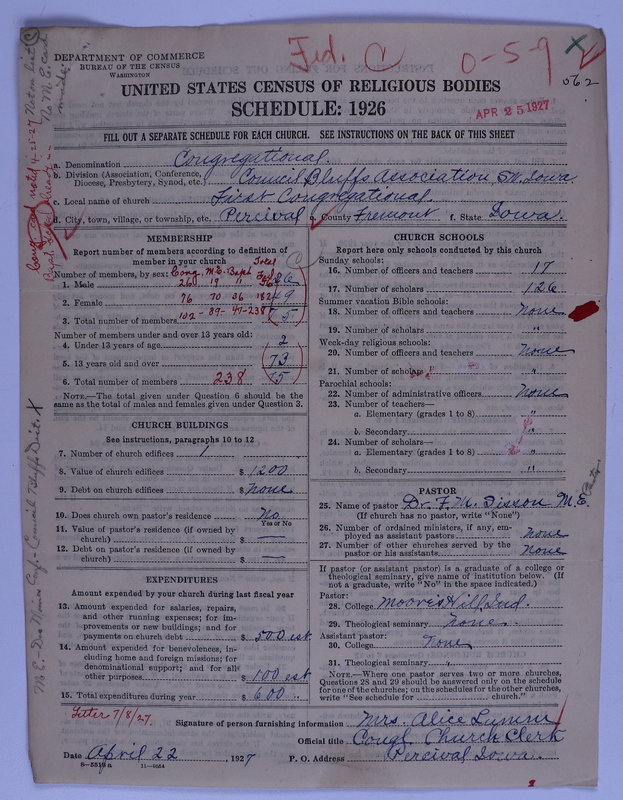 Fed. C
0-5-9
062
APR 25 1927
DEPARTMENT OF COMMERCE
BUREAU OF THE CENSUS
WASHINGTON
UNITED STATES CENSUS OF RELIGIOUS BODIES
SCHEDULE: 1926
FILL OUT A SEPARATE SCHEDULE FOR EACH CHURCH. SEE INSTRUCTIONS ON THE BACK OF THIS SHEET
a. Denomination Congregational.
b. Division (Association, Conference, Diocese, Presbytery, Synod, etc.) Council Bluffs Association, SW. Iowa.
c. Local name of church First Congregational.
d. City, town, village, or township, etc. Percival e. County Fremont f. State Iowa.
MEMBERSHIP
Report number of members according to definition of member in your church
Number of members, by sex: Cong. M.E. Bapt Total
1. Male 26 19 11 56
2. Female 76 70 36 182
3. Total number of members 102-89-47-238
Number of members under and over 13 years old:
4. Under 13 years of age 2
5. 13 years old and over 73
6. Total number of members 238 75
NOTE.—The total given under Question 6 should be the same as the total of males and females given under Question 3.
CHURCH BUILDINGS
See instructions, paragraphs 10 to 12
7. Number of church edifices 1
8. Value of church edifices $ 1200
9. Debt on church edifices $ none
10. Does church own pastor's residence No
Yes or No
11. Value of pastor's residence (if owned by church) $ —
12. Debt on pastor's residence (if owned by church) $ —
EXPENDITURES
Amount expended by your church during last fiscal year
13. Amount expended for salaries, repairs, and other running expenses; for improvements or new buildings; and for payments on church debt $ 500 est
14. Amount expended for benevolences, including home and foreign missions; for denominational support; and for all other purposes $ 100 est
15. Total expenditures during year $ 600
CHURCH SCHOOLS
Report here only schools conducted by this church
Sunday schools:
16. Number of officers and teachers 17
17. Number of scholars 126
Summer vacation Bible schools:
18. Number of officers and teachers none
19. Number of scholars "
Week-day religious schools:
20. Number of officers and teachers none
21. Number of scholars "
Parochial schools:
22. Number of administrative officers none
23. Number of teachers—
a. Elementary (grades 1 to 8) "
b. Secondary "
24. Number of scholars—
a. Elementary (grades 1 to 8) "
b. Secondary "
PASTOR
25. Name of pastor Dr. F. M. Sisson M.E.
(If church has no pastor, write "None")
26. Number of ordained ministers, if any, employed as assistant pastors none
27. Number of other churches served by the pastor or his assistants none
If pastor (or assistant pastor) is a graduate of a college or theological seminary, give name of institution below. (If not a graduate, write "No" in the space indicated.)
Pastor:
28. College Moores Hill Ind.
29. Theological seminary none.
Assistant pastor:
30. College none
31. Theological seminary "
NOTE.—Where one pastor serves two or more churches, Questions 28 and 29 should be answered only on the schedule for one of the churches; on the schedules for the other churches, write "See schedule for church."
Letter 7/8/27.
Signature of person furnishing information Mrs. Alice
Official title Congl. Church Clerk
Date April 22, 1927 P. O. Address Percival Iowa.
8—5518a 11—9054
M.E.-Des Moines Conf-Council Bluffs Dist X